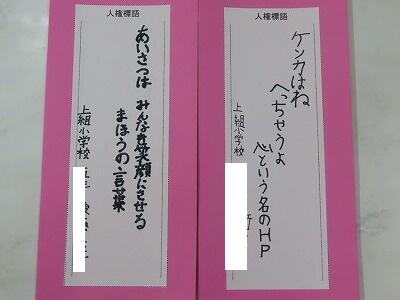 人権標語
ケンカはね
へっちゃうよ
心という名のHP
上組小学校
人権標語
あいさつは みんなを笑顔にさせる
まほうの言葉
上組小学校